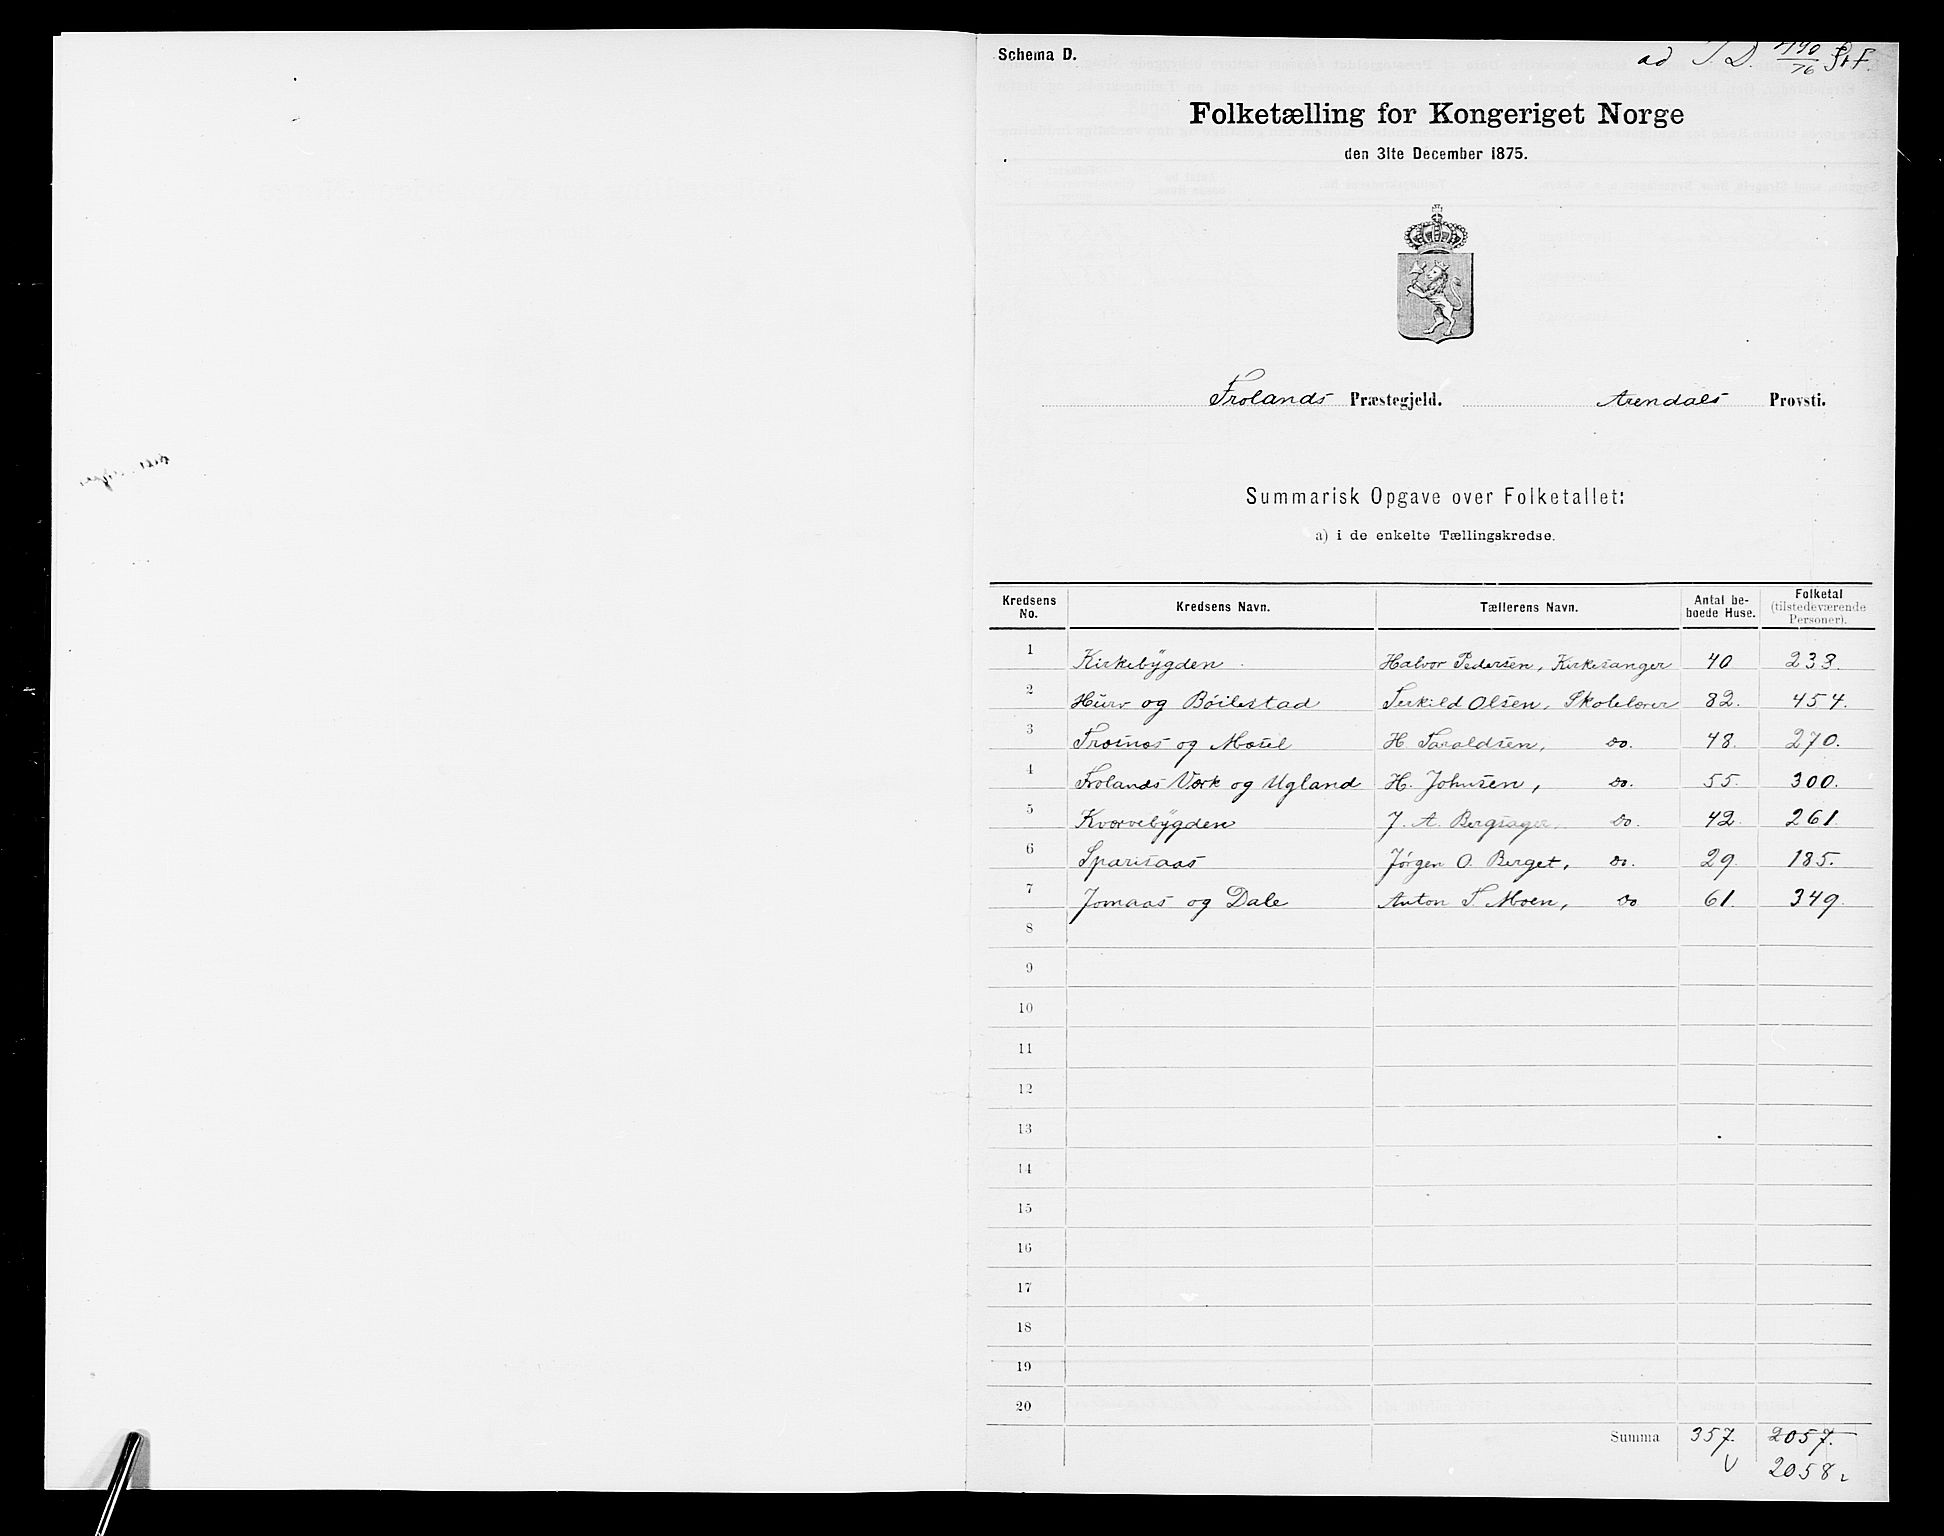 Schema D.
ad T. D. 1190/76 St F.
Folketælling for Kongeriget Norge
den 31te December 1875.
Frolands Præstegjeld. Arendals Provsti.
Summarisk Opgave over Folketallet:
a) i de enkelte Tællingskredse.
Kredsens No. Kredsens Navn. Tællerens Navn. Antal beboede Huse. Folketal (tilstedeværende Personer).
1 Kirkebÿgden Halvor Pedersen, Kirkesanger 40 238.
2 Hurv og Bøilestad Terkild Olsen, Skolelærer 82. 454.
3 Trøsnæs og Mosel H. Taraldsen, Do. 48. 270.
4 Frolands Værk og Ugland H. Johnsen, Do. 55. 300.
5 Kvævebÿgden J. A. Bergsager, Do. 42. 261.
6 Sparsaas Jørgen O. Berget, Do. 29. 185.
7 Jomaas og Dale Anton T. Moen, Do 61. 349.
8
9
10
11
12
13
14
15
16
17
18
19
20
Summa 357. 2057.
2058.